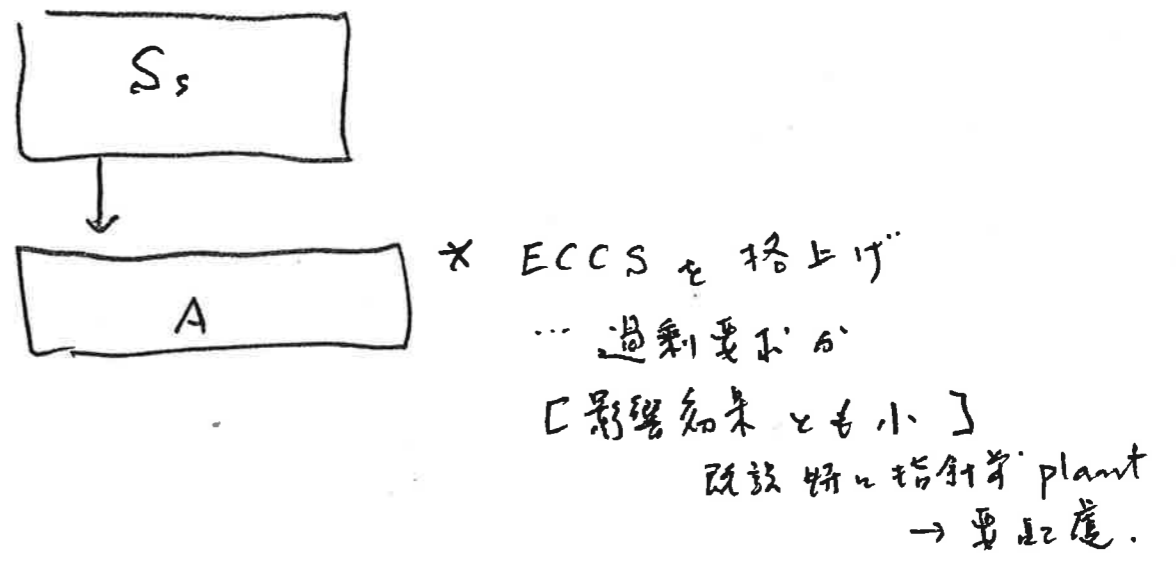 Ss
A
* ECCSを格上げ
… 過剰要求か
[影響効果とも小]
既設 特に指針前 plant
→ 要配慮.